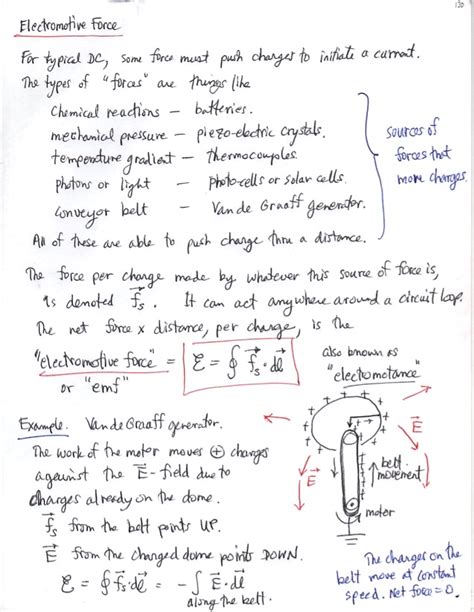 130
Electromotive Force
For typical DC, some force must push charges to initiate a current.
The types of "forces" are things like
Chemical reactions – batteries.
mechanical pressure – piezo-electric crystals.
temperature gradient – thermocouples
photons or light – photocells or solar cells.
conveyor belt – Van de Graaff generator.
sources of
forces that
move charges.
All of these are able to push charge thru a distance.
The force per charge made by whatever this source of force is,
is denoted f⃗s. It can act anywhere around a circuit loop.
The net force x distance, per charge, is the
"electromotive force" = ℰ = ∮ f⃗s·dl⃗
or "emf"
also known as
"electromotance"
Example: Van de Graaff generator.
The work of the motor moves ⊕ charges
against the E⃗-field due to
charges already on the dome.
f⃗s from the belt points UP.
E⃗ from the charged dome points DOWN.
ℰ = ∮ f⃗s·dl⃗ = -∫ E⃗·dl⃗
along the belt.
E⃗
E⃗
E⃗
belt
movement
motor
The charges on the
belt move at constant
speed. Net force = 0.